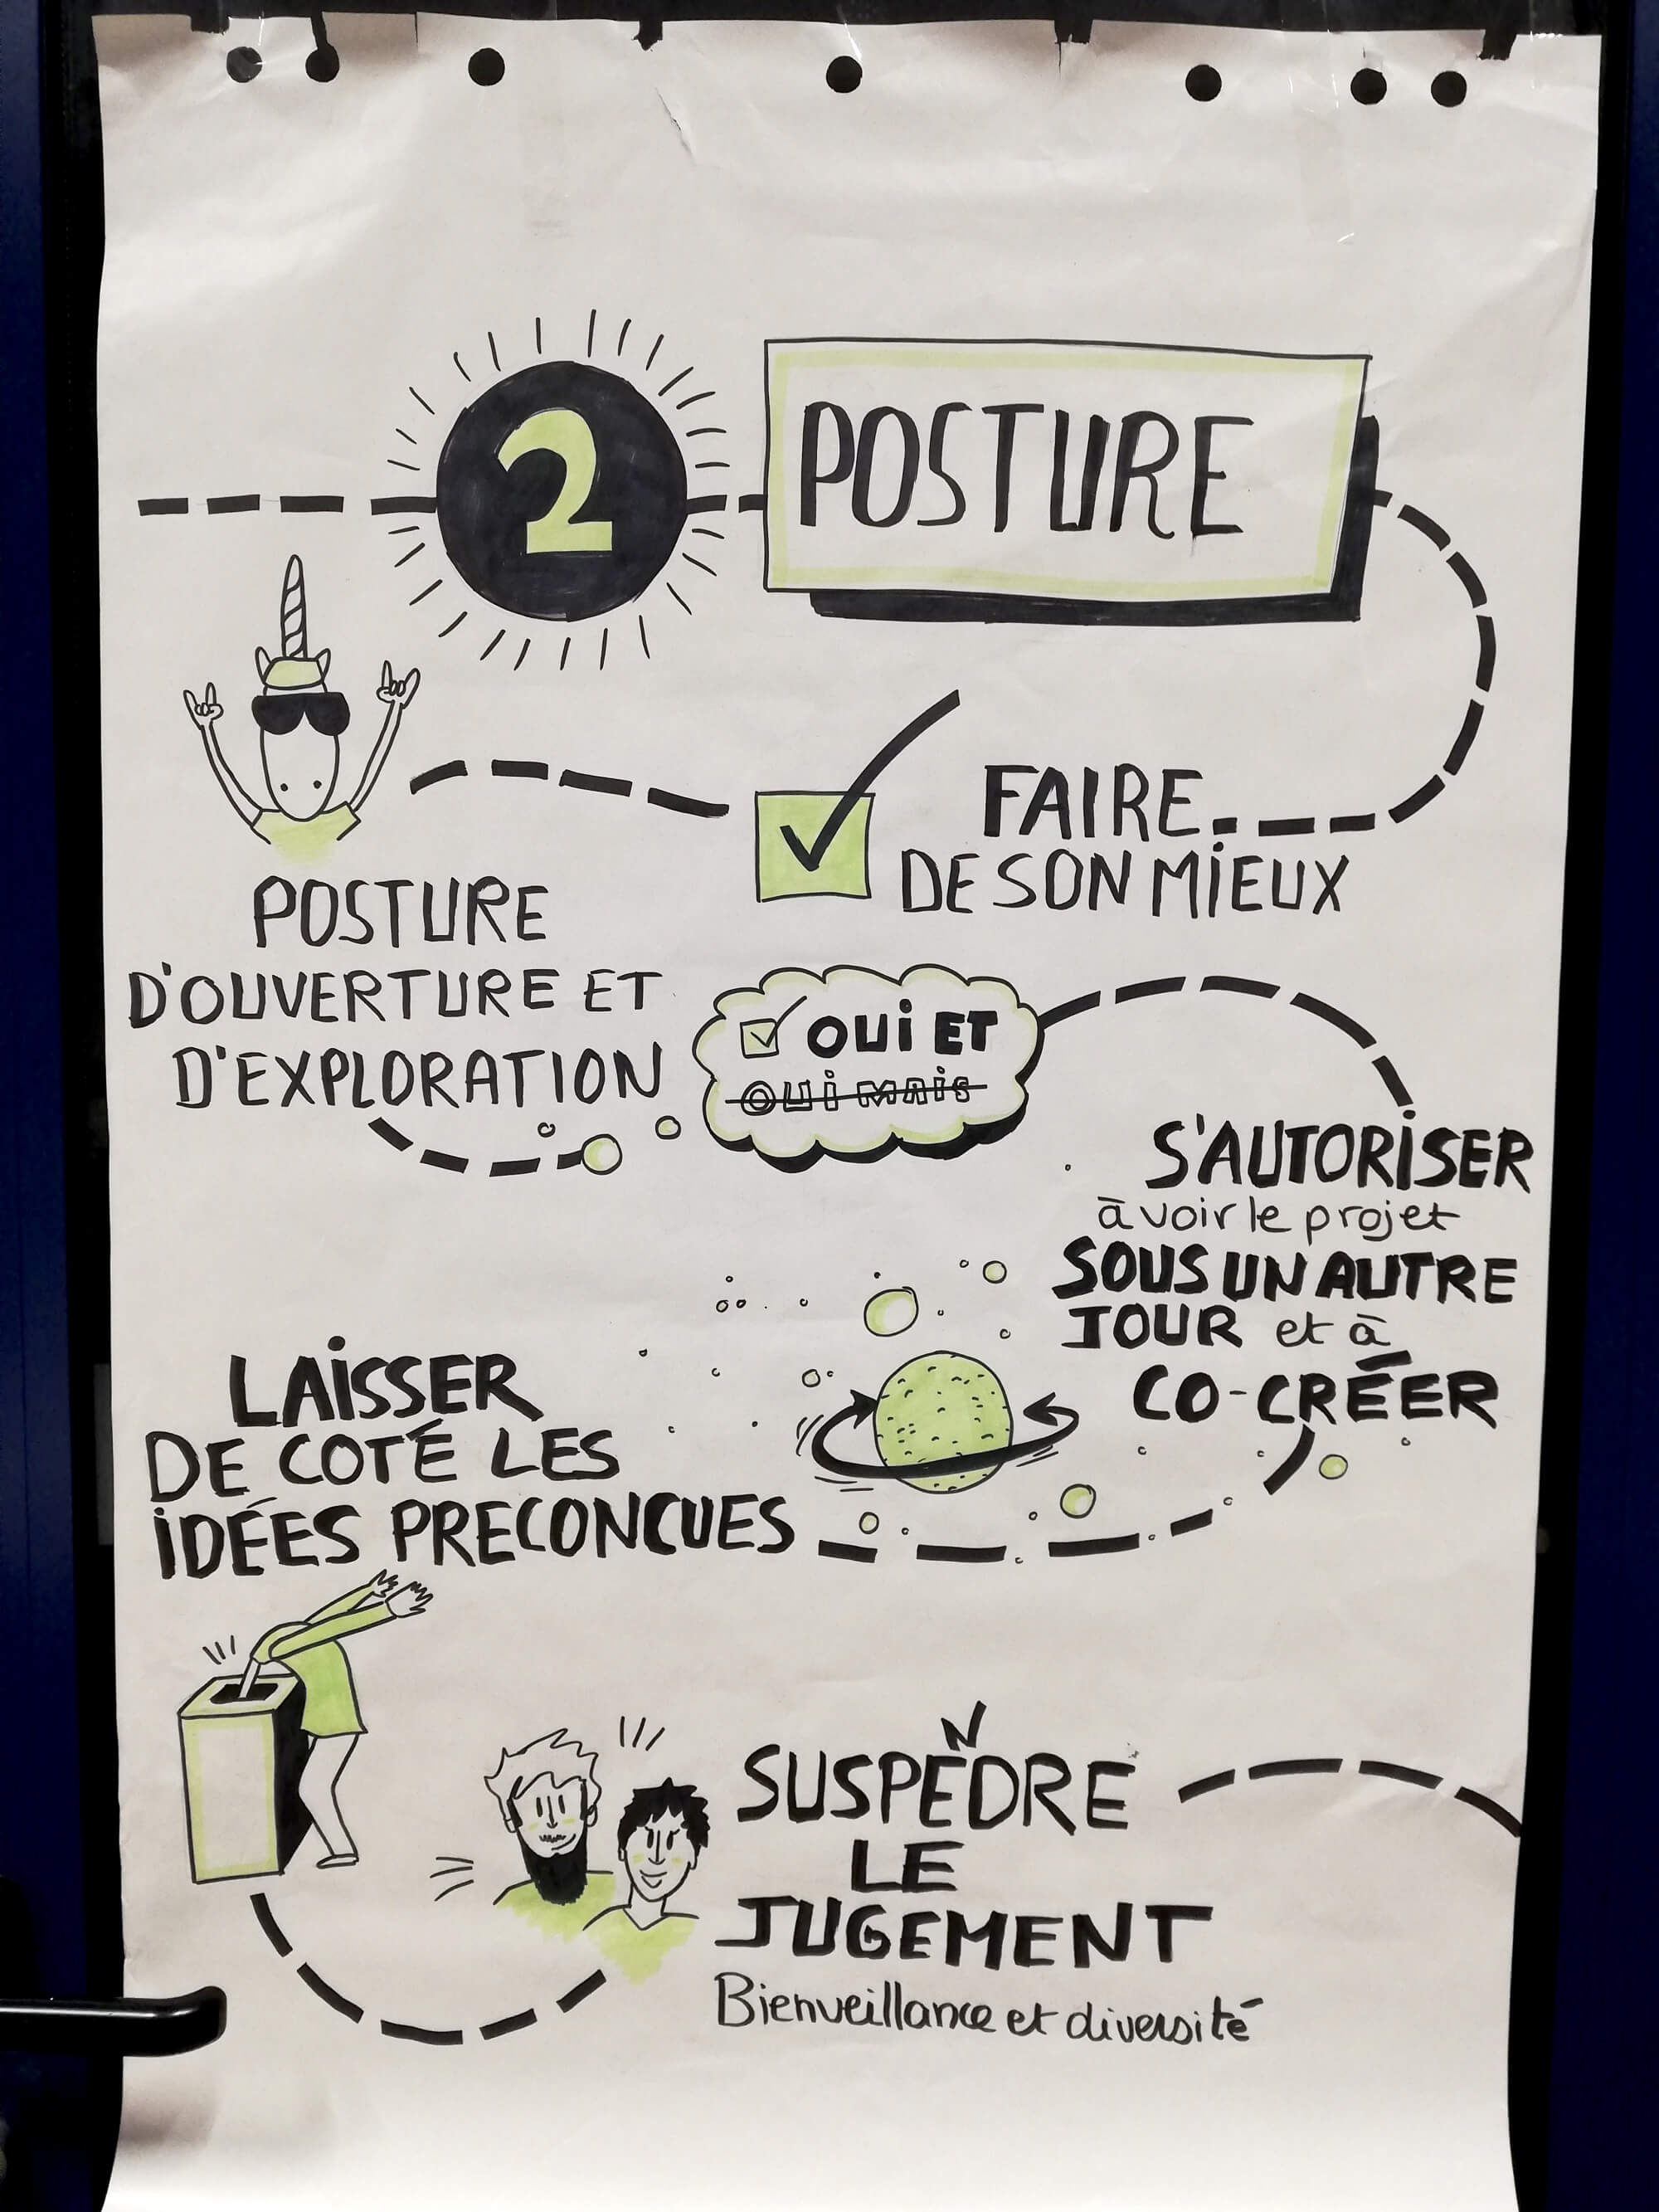 2
POSTURE
FAIRE
DE SON MIEUX
POSTURE
D'OUVERTURE ET
D'EXPLORATION
OUI ET
OUI MAIS
S'AUTORISER
à voir le projet
SOUS UN AUTRE
JOUR et à
CO-CRÉER
LAISSER
DE COTÉ LES
IDÉES PRECONCUES
SUSPENDRE
LE
JUGEMENT
Bienveillance et diversité